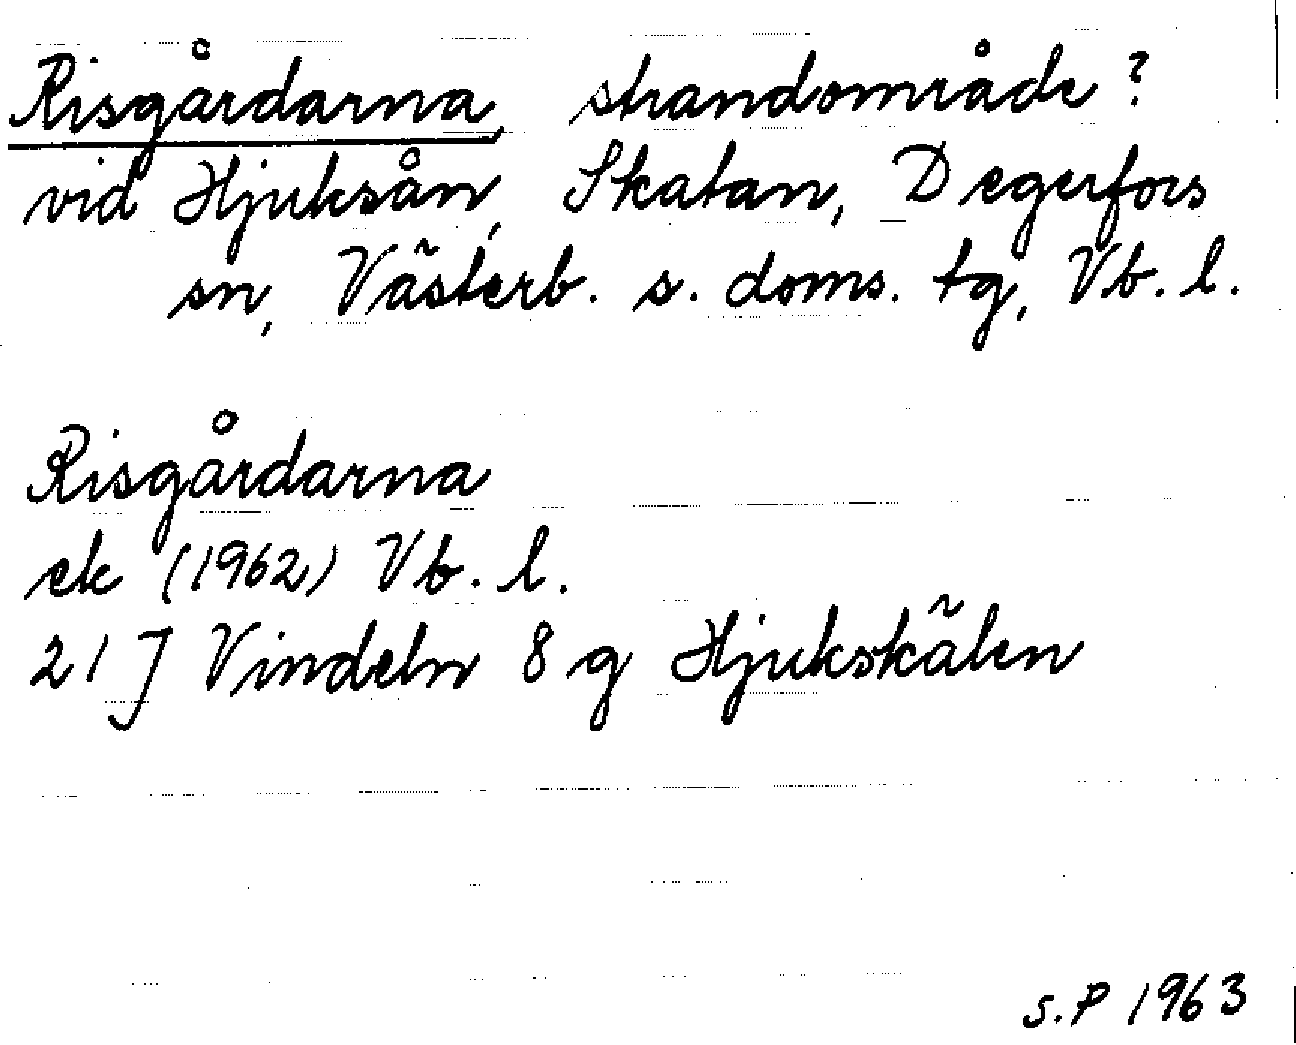 Risgårdarna, strandområde?
vid Hjuksån, Skatan, Degerfors
sn, Västerb. s. doms. tg, Vb. l.
Risgårdarna
ek (1962) Vb. l.
21 J Vindeln 8 g Hjukskälen
S.P 1963